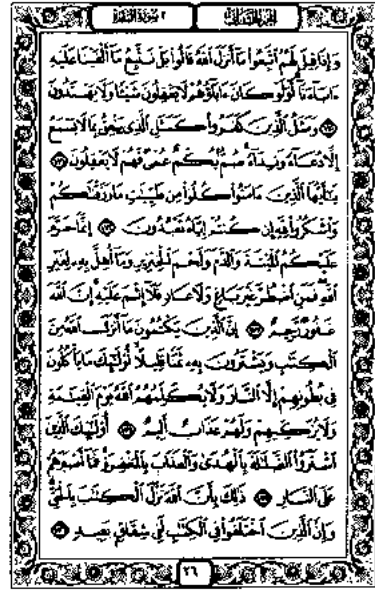 الجزء الثاني ٢ سورة البقرة
وَإِذَا قِيلَ لَهُمُ اتَّبِعُوا مَا أَنزَلَ اللَّهُ قَالُوا بَلْ نَتَّبِعُ مَا أَلْفَيْنَا عَلَيْهِ
ءَابَاءَنَا أَوَلَوْ كَانَ ءَابَاؤُهُمْ لَا يَعْقِلُونَ شَيْئًا وَلَا يَهْتَدُونَ
١٧٠ وَمَثَلُ الَّذِينَ كَفَرُوا كَمَثَلِ الَّذِي يَنْعِقُ بِمَا لَا يَسْمَعُ
إِلَّا دُعَاءً وَنِدَاءً صُمٌّ بُكْمٌ عُمْيٌ فَهُمْ لَا يَعْقِلُونَ ١٧١
يَٰأَيُّهَا الَّذِينَ ءَامَنُوا كُلُوا مِن طَيِّبَٰتِ مَا رَزَقْنَٰكُمْ
وَاشْكُرُوا لِلَّهِ إِن كُنتُمْ إِيَّاهُ تَعْبُدُونَ ١٧٢ إِنَّمَا حَرَّمَ
عَلَيْكُمُ الْمَيْتَةَ وَالدَّمَ وَلَحْمَ الْخِنزِيرِ وَمَا أُهِلَّ بِهِ لِغَيْرِ
اللَّهِ فَمَنِ اضْطُرَّ غَيْرَ بَاغٍ وَلَا عَادٍ فَلَا إِثْمَ عَلَيْهِ إِنَّ اللَّهَ
غَفُورٌ رَّحِيمٌ ١٧٣ إِنَّ الَّذِينَ يَكْتُمُونَ مَا أَنزَلَ اللَّهُ مِنَ
الْكِتَٰبِ وَيَشْتَرُونَ بِهِ ثَمَنًا قَلِيلًا أُولَٰئِكَ مَا يَأْكُلُونَ
فِي بُطُونِهِمْ إِلَّا النَّارَ وَلَا يُكَلِّمُهُمُ اللَّهُ يَوْمَ الْقِيَٰمَةِ
وَلَا يُزَكِّيهِمْ وَلَهُمْ عَذَابٌ أَلِيمٌ ١٧٤ أُولَٰئِكَ الَّذِينَ
اشْتَرَوُا الضَّلَٰلَةَ بِالْهُدَىٰ وَالْعَذَابَ بِالْمَغْفِرَةِ فَمَا أَصْبَرَهُمْ
عَلَى النَّارِ ١٧٥ ذَٰلِكَ بِأَنَّ اللَّهَ نَزَّلَ الْكِتَٰبَ بِالْحَقِّ
وَإِنَّ الَّذِينَ اخْتَلَفُوا فِي الْكِتَٰبِ لَفِي شِقَاقٍ بَعِيدٍ ١٧٦
٢٦